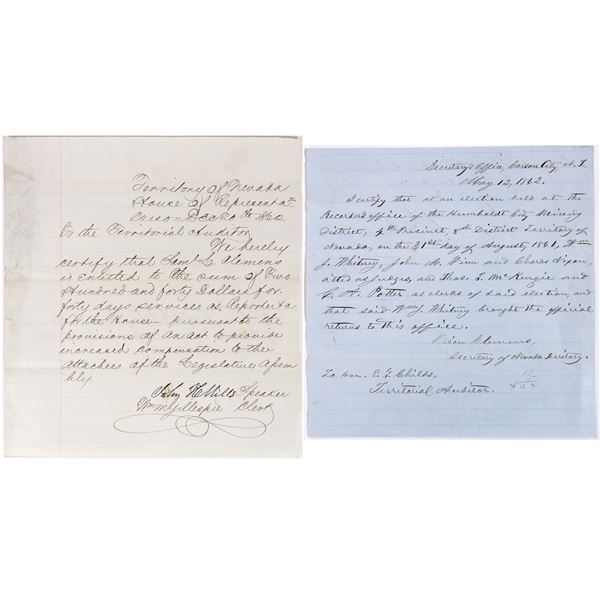 Territory of Nevada
House of Representat
Carson Dec 20th 1862
To the Territorial Auditor
We hereby
certify that Saml L. Clemens
is entitled to the sum of Two
Hundred and forty Dollars for
forty days services as Reporter &c
for the House - pursuant to the
provisions of an act to provide
increased compensation to the
attachees of the Legislative Assem
bly
John H Mills Speaker
Wm M Gillespie Clerk
Secretary's Office, Carson City N. T.
May 12, 1862.
I certify that at an election held at the
Recorder's office of the Humboldt City Mining
District, 4th Precinct, 8th District Territory of
Nevada, on the 31st day of August, 1861, Wm
J. Whitney, John H. Winn and Charles Nixon,
acted as judges, and Thos. L. McKenzie and
A. Potter as clerks of said election, and
that said Wm J. Whitney brought the official
returns to this office.
Orion Clemens,
Secretary of Nevada Territory.
To Hon. P. G. Childs,
Territorial Auditor.